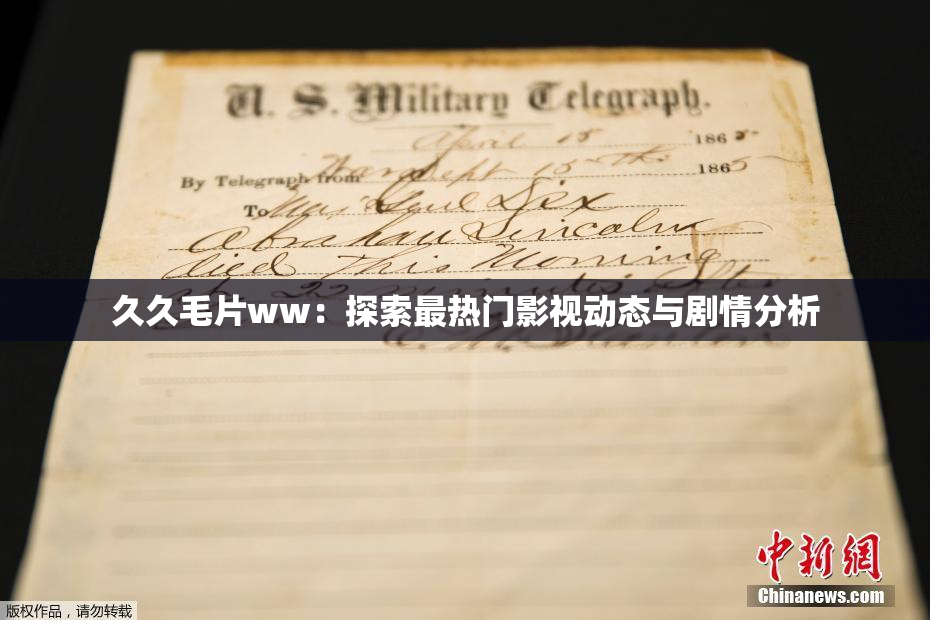 U. S. Military Telegraph.
April 15 1865
By Telegraph from War Dept 15th 1865
To Maj Genl Dix
Abraham Lincoln
died this Morning
22 minutes after
久久毛片ww：探索最热门影视动态与剧情分析
中新網
Chinanews.com
版权作品，请勿转载